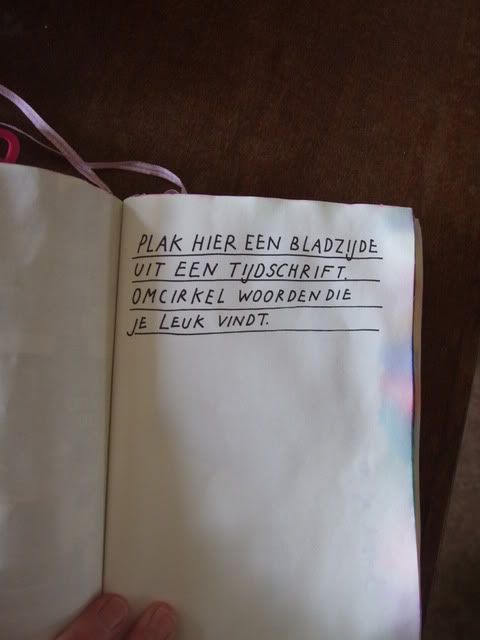 PLAK HIER EEN BLADZIJDE
UIT EEN TIJDSCHRIFT.
OMCIRKEL WOORDEN DIE
JE LEUK VINDT.